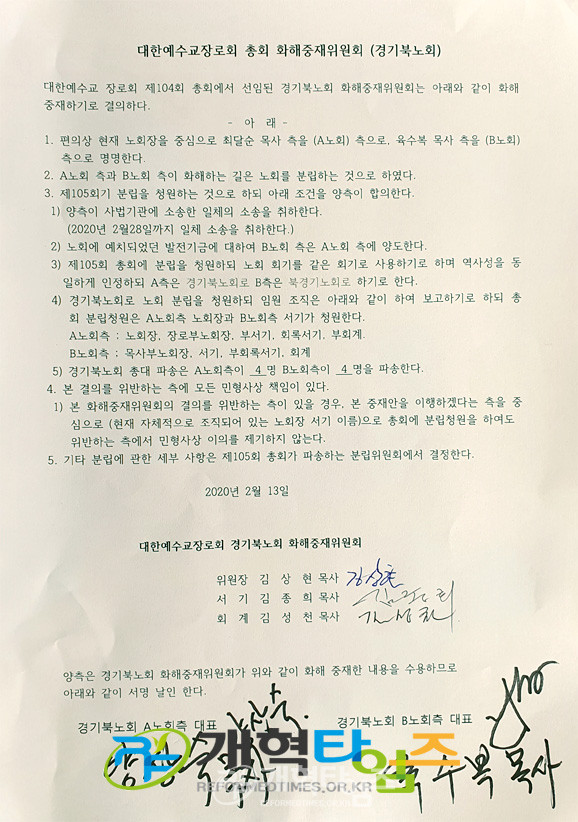 대한예수교장로회 총회 화해중재위원회 (경기북노회)
대한예수교 장로회 제104회 총회에서 선임된 경기북노회 화해중재위원회는 아래와 같이 화해
중재하기로 결의하다.
- 아 래 -
1. 편의상 현재 노회장을 중심으로 최달순 목사 측을 (A노회) 측으로, 육수복 목사 측을 (B노회)
측으로 명명한다.
2. A노회 측과 B노회 측이 화해하는 길은 노회를 분립하는 것으로 하였다.
3. 제105회기 분립을 청원하는 것으로 하되 아래 조건을 양측이 합의한다.
1) 양측이 사법기관에 소송한 일체의 소송을 취하한다.
(2020년 2월28일까지 일체 소송을 취하한다.)
2) 노회에 예치되었던 발전기금에 대하여 B노회 측은 A노회 측에 양도한다.
3) 제105회 총회에 분립을 청원하되 노회 회기를 같은 회기로 사용하기로 하며 역사성을 동
일하게 인정하되 A측은 경기북노회로 B측은 북경기노회로 하기로 한다.
4) 경기북노회로 노회 분립을 청원하되 임원 조직은 아래와 같이 하여 보고하기로 하되 총
회 분립청원은 A노회측 노회장과 B노회측 서기가 청원한다.
A노회측 : 노회장, 장로부노회장, 부서기, 회록서기, 부회계.
B노회측 : 목사부노회장, 서기, 부회록서기, 회계
5) 경기북노회 총대 파송은 A노회측이 4 명 B노회측이 4 명을 파송한다.
4. 본 결의를 위반하는 측에 모든 민형사상 책임이 있다.
1) 본 화해중재위원회의 결의를 위반하는 측이 있을 경우, 본 중재안을 이행하겠다는 측을 중
심으로 (현재 자체적으로 조직되어 있는 노회장 서기 이름)으로 총회에 분립청원을 하여도
위반하는 측에서 민형사상 이의를 제기하지 않는다.
5. 기타 분립에 관한 세부 사항은 제105회 총회가 파송하는 분립위원회에서 결정한다.
2020년 2월 13일
대한예수교장로회 경기북노회 화해중재위원회
위원장 김 상 현 목사
서 기 김 종 희 목사
회 계 김 성 천 목사
양측은 경기북노회 화해중재위원회가 위와 같이 화해 중재한 내용을 수용하므로
아래와 같이 서명 날인 한다.
경기북노회 A노회측 대표
경기북노회 B노회측 대표
개혁타임즈
REFORMEDTIMES.OR.KR
육수복 목사